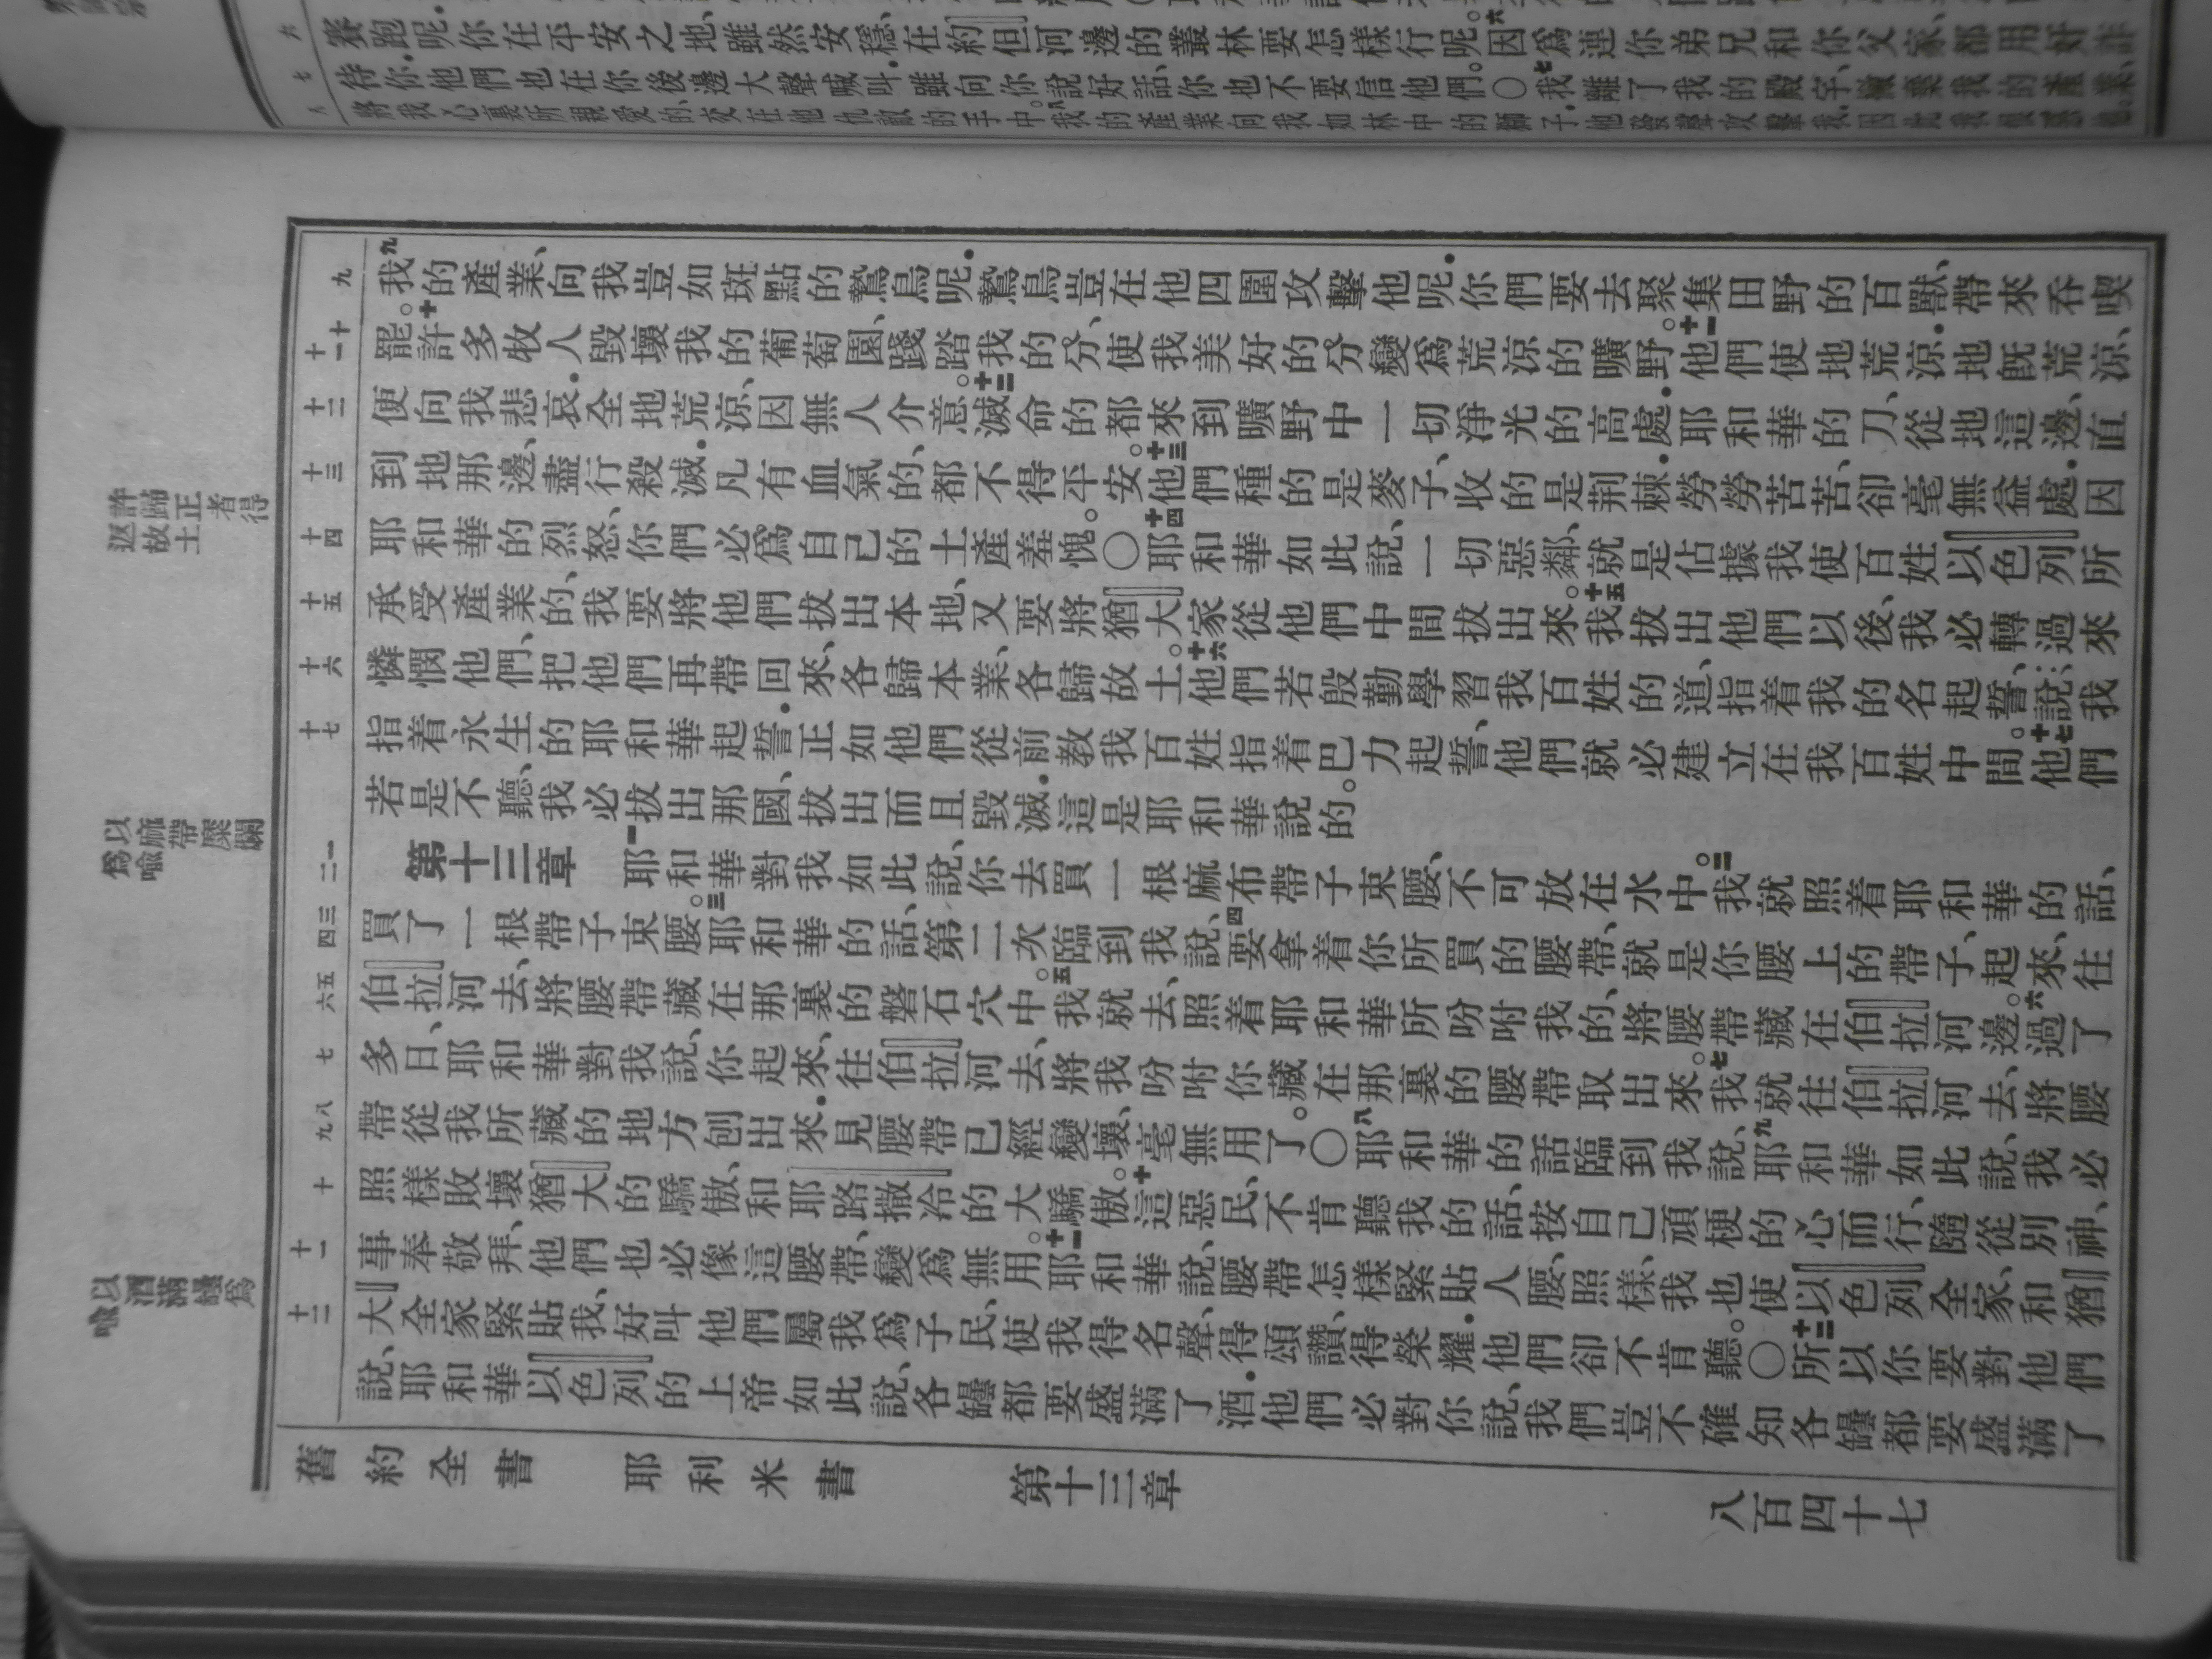 賽跑呢·你在平安之地、雖然安穩、在約但河邊的叢林要怎樣行呢。六因爲連你弟兄和你父家、都用奸詐
待你·他們也在你後邊大聲喊叫·雖向你說好話、你也不要信他們。○七我離了我的殿宇、撇棄我的產業、
將我心裏所親愛的、交在他仇敵的手中。八我的產業向我如林中的獅子·他發聲攻擊我、因此我恨惡他。
六
七
八
九我的產業、向我豈如斑點的鷙鳥呢·鷙鳥豈在他四圍攻擊他呢·你們要去聚集田野的百獸、帶來吞喫
罷。十許多牧人毀壞我的葡萄園、踐踏我的分、使我美好的分變爲荒涼的曠野。十一他們使地荒涼·地既荒涼、
便向我悲哀·全地荒涼、因無人介意。十二滅命的都來到曠野中一切淨光的高處·耶和華的刀、從地這邊、直
到地那邊、盡行殺滅·凡有血氣的、都不得平安。十三他們種的是麥子、收的是荆棘·勞勞苦苦、卻毫無益處·因
耶和華的烈怒、你們必爲自己的土產羞愧。○十四耶和華如此說、一切惡鄰、就是佔據我使百姓以色列所
承受產業的、我要將他們拔出本地、又要將猶大家從他們中間拔出來。十五我拔出他們以後、我必轉過來
憐憫他們、把他們再帶回來、各歸本業、各歸故土。十六他們若殷勤學習我百姓的道、指着我的名起誓、說…我
指着永生的耶和華起誓·正如他們從前教我百姓指着巴力起誓、他們就必建立在我百姓中間。十七他們
若是不聽、我必拔出那國、拔出而且毀滅·這是耶和華說的。
第十三章 一耶和華對我如此說、你去買一根麻布帶子束腰、不可放在水中。二我就照着耶和華的話、
買了一根帶子束腰。三耶和華的話、第二次臨到我說、四要拿着你所買的腰帶、就是你腰上的帶子、起來、往
伯拉河去、將腰帶藏在那裏的磐石穴中。五我就去、照着耶和華所吩咐我的、將腰帶藏在伯拉河邊。六過了
多日、耶和華對我說、你起來、往伯拉河去、將我吩咐你藏在那裏的腰帶取出來。七我就往伯拉河去、將腰
帶從我所藏的地方刨出來·見腰帶已經變壞、毫無用了。○八耶和華的話臨到我說、九耶和華如此說、我必
照樣敗壞猶大的驕傲、和耶路撒冷的大驕傲。十這惡民、不肯聽我的話、按自己頑梗的心而行、隨從別神、
事奉敬拜、他們也必像這腰帶、變爲無用。十一耶和華說、腰帶怎樣緊貼人腰、照樣、我也使以色列全家、和猶
大全家緊貼我、好叫他們屬我爲子民、使我得名聲、得頌讚、得榮耀·他們卻不肯聽。○十二所以你要對他們
說、耶和華以色列的上帝如此說、各罎都要盛滿了酒·他們必對你說、我們豈不確知各罎都要盛滿了
九
十
十一
十二
十三
十四
十五
十六
十七
一
二
三
四
五
六
七
八
九
十
十一
十二
許歸正者得
返故土
以麻帶糜爛
爲喻
以酒滿罎爲
喩
舊約全書 耶利米書 第十三章 八百四十七